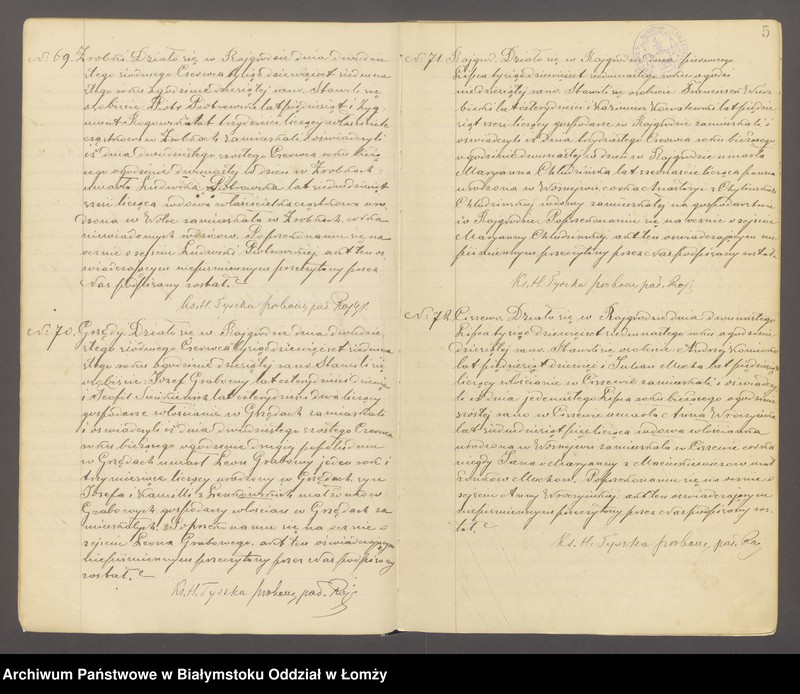 5
N. 69. Zrobki. Działo się w Rajgrodzie dnia dwudzie-
stego siódmego Czerwca tysiąc dziewięćset siedmna-
stego roku o godzinie dziesiątej rano. Stawili się
osobiście Piotr Piotrowski lat pięćdziesiąt i Zyg-
munt Rogowski lat trzydzieści liczący właściciele
cząstkowi w Zrobkach zamieszkali i oświadczyli
iż dnia dwudziestego szóstego Czerwca roku bieżą-
cego o godzinie dwunastej w dzień w Zrobkach
umarła Ludwika Piotrowska lat siedmdziesiąt
sześć licząca wdowa właścicielka cząstkowa uro-
dzona w Wólce zamieszkała w Zrobkach, córka
niewiadomych rodziców. Po przekonaniu się na-
ocznie o zejściu Ludwiki Piotrowskiej, akt ten oś-
wiadczającym niepiśmiennym przeczytany przez
Nas podpisany został.
Ks. H. Tyszka probosz, par. Rajg.
N. 70. Grzędy. Działo się w Rajgrodzie dnia dwudzie-
stego siódmego Czerwca tysiąc dziewięćset siedmna-
stego roku o godzinie dziesiątej rano. Stawili się
osobiście: Józef Grabowy lat czterdzieści
i Teofil lat czterdzieści dwa liczący
gospodarze włościanie w Grzędach zamieszkali
i oświadczyli iż dnia dwudziestego szóstego Czerwca
roku bieżącego o godzinie drugiej po południu
w Grzędach umarł Leon Grabowy jeden rok i
trzy miesiące liczący urodzony w Grzędach, syn
Józefa i Kamilli z małżonków
Grabowych gospodarzy włościan w Grzędach za-
mieszkałych. Po przekonaniu się naocznie o
zejściu Leona Grabowego, akt ten oświadczającym
niepiśmiennym przeczytany przez Nas podpisany
został.
Ks. H. Tyszka probosz, par. Rajg
N. 71. Rajgród. Działo się w Rajgrodzie dnia pierwszego
Lipca tysiąc dziewięćset siedmnastego roku o godzi-
nie dziesiątej rano. Stawili się osobiście Franciszek Wierz-
bicki lat czterdzieści i Kazimierz Kowalewski lat pięćdzie-
siąt sześć liczący gospodarze w Rajgrodzie zamieszkali i
oświadczyli iż dnia trzydziestego Czerwca roku bieżącego
o godzinie dwunastej w dzień w Rajgrodzie umarła
Maryanna Chludzińska lat szesnaście licząca panna
urodzona w Woźnejwsi, córka Anastazyi z
Chludzińskiej wdowy zamieszkałej na gospodarstwie
w Rajgrodzie. Po przekonaniu się naocznie o zejściu
Maryanny Chludzińskiej, akt ten oświadczającym nie-
piśmiennym przeczytany przez Nas podpisany został.
Ks. H. Tyszka probosz, par. Raj.
N. 72. Ciszewo. Działo się w Rajgrodzie dnia dwunastego
Lipca tysiąc dziewięćset siedmnastego roku o godzinie
dziesiątej rano. Stawili się osobiście Andrzej
lat pięćdziesiąt dziewięć i Julian Mucha lat pięćdziesiąt
liczący włościanie w Ciszewie zamieszkali i oświadczy-
li iż dnia jedenastego Lipca roku bieżącego o godzinie
szóstej rano w Ciszewie umarła Anna Wroczyńska
lat siedmdziesiąt pięć licząca wdowa włościanka
urodzona w Woźnejwsi zamieszkała w Ciszewie córka
niegdy Jana i Maryanny z małż-
żonków Muchów. Po przekonaniu się naocznie o
zejściu Anny Wroczyńskiej, akt ten oświadczającym
niepiśmiennym przeczytany przez Nas podpisany zos-
tał.
Ks. H. Tyszka probosz, par. Raj
Archiwum Państwowe w Białymstoku Oddział w Łomży